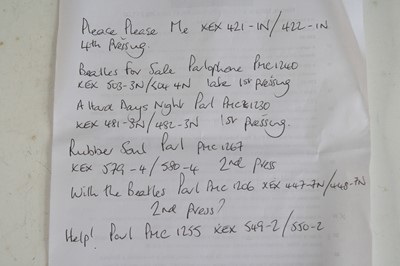 Please Please Me XEX 421-1N/422-1N
4th Pressing.
Beatles For Sale Parlophone PMC 1240
XEX 503-3N/504 4N late 1st pressing
A Hard Days Night Parl PMC 1230
XEX 481-3N/482-3N 1st pressing.
Rubber Soul Parl PMC 1267
XEX 579-4/580-4 2nd press
With the Beatles Parl PMC 1206 XEX 447-7N/448-7N
2nd press?
Help! Parl PMC 1255 XEX 549-2/550-2